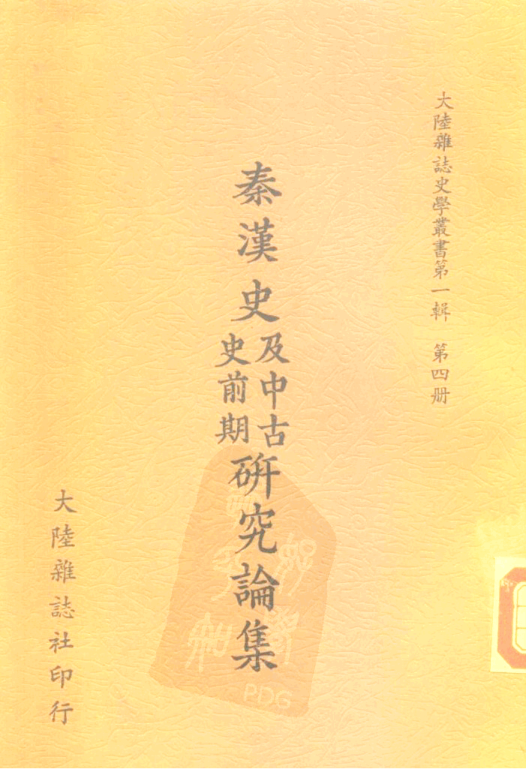 大陸雜誌史學叢書第一輯 第四册
秦漢史及中古史前期研究論集
大陸雜誌社印行
PDG